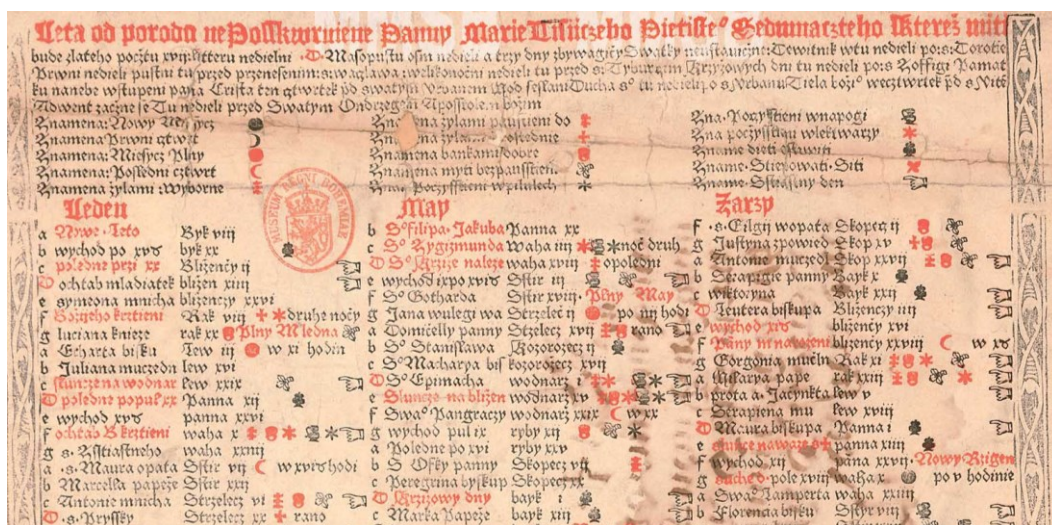 Leta od porodu nePosskwrniene Panny Marie Tisiczeho Pietisteo Sedmnacteho Kterež mit
bude zlateho pocžtu xvij litteru nedielni D Masopustu osm nediel a trzy dny zbywagicy Swatky neustawicne Dewitnik wtu nedieli po s Dorotie
Prwni nedieli pustni tu przed przenesenim s waclawa welikonocni nedieli tu przed s Tyburcym Krzyzowych dni tu nedieli po s Zoffigi Pamat
ku nanebe wstupeni pana Crista ten cztwrtek przed swatym Vrbanem Hod seslani Ducha so tu nedieli po s Vrbanu Tiela božio we cztwrtek przed s Vite
Adwent zacžne se Tu nedieli przed Swatym Ondrzegem Aposstolem bozim
Znamena Nowy Mesycz
Znamena Prwni cztwrt
Znamena Miesycz Plny
Znamena Posledni cztwrt
Znamena zylami wyborne
Znamena zylami pausstieni do
Znamena zylami posrednie
Znamena bankami dobre
Znamena myti bezpausstieni
Zna Poczyssteni wpilulech
Zna Poczyssteni wnapogi
Zna poczyssteni wlektwarzy
Zname dieti ostawiti
Zname Sstiepowati Siti
Zname Strassny den
Leden
a Nowe Leto Byk viij
b wychod po xvo byk xx
c poledne przi xx Bliženčy ij
D ochtab mladiatek bližen xiiij
e symeona mnicha blizenczy xxvi
f Božieho krztieni Rak viij druhe nočy
g luciana knieze rak xx Plny Ledna
a Erharta bisku Lew iij w xi hodin
b Juliana muczedn lew xvi
c slunce na wodnar Lew xxix
D poledne popul xx Panna xij
e wychod xvo panna xxvi
f ochtab S krztieni waha x
g s Sstiastneho waha xxiiij
a s Maura opata Sstir vij w xvio hodi
b Marcella papeže Sstir xxi
c Antonie mnicha Strzelecz vi
D s Pryssky Strzelecz xx rano
May
b So filipa Jakuba Panna xx
c So Zygizmunda Waha iiij noč druh
D So Krzize naleze waha xviij opoledni
e wychod ix po xvio Sstir iij
f So Gotharda Sstir xviij Plny May
g Jana wulegi wa Strzelec ij po iiij hodi
a Domicelly panny Stzelecz xvij rano
b So Stanislawa Kozorozecz ij
c So Macharya bis kozorozecz xvij
D So Epimacha wodnarz i
e Slunce na bližen wodnarz xv
f Swao Pangraczy wodnarz xxix w xx
g wychod pul ix ryby xij
a Poledne po xvi ryby xxv
b S Offky panny Skopecz vij
c Peregrina byskup Skopecz xx
D Krizowy dny bayk i
e Marka Papeže bayk xiij
Zarzy
f s Eilgij wopata Skopecz ij
g Justyna zpowied Skop xv
a Antonie muczedl Skop xxvij
b Serapigie panny Bayk x
c wiktoryna Bayk xxij
D Leutera biskupa Blizenczy iiij
e wychod xio bliženčy xvi
f Panny M narozeni blizenczy xxviij w xo
g Gorgonia mučln Rak xi
a Hilarya pape rak xxiij
b prota a Jacynkta lew v
c Serapiena mu lew xviij
D Maura biskupa Panna i
e slunce na waze s + panna xiij
f wychod xij pana xxvij Nowy Rzigen
g suche d pole xviij waha x po v hodine
a Swao Lamperta waha xxiij
b Florencia bisku Sstyr viij